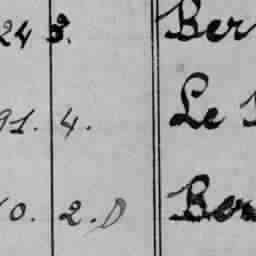 24 3. Ber
91. 4. Le
0. 2. D Ber